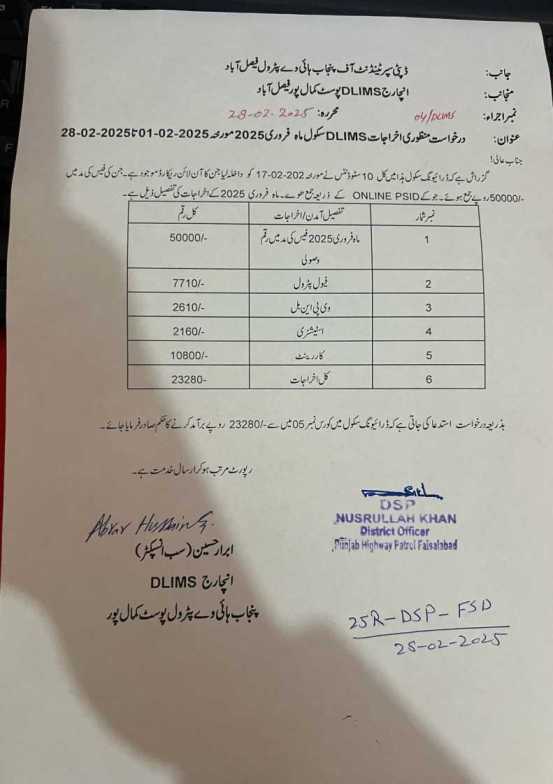 جانب: ڈپٹی سپرنٹنڈنٹ آف پنجاب ہائی وے پٹرول فیصل آباد
منجانب: انچارج DLIMS پوسٹ کمال پور فیصل آباد
نمبر اجراء: 04/DLIMS محررہ: 28-02-2025
عنوان: درخواست منظوری اخراجات DLIMS سکول ماہ فروری 2025 مورخہ 01-02-2025 تا 28-02-2025
جناب عالی!
گزارش ہے کہ ڈرائیونگ سکول ہذا میں کل 10 سٹوڈنٹس نے مورخہ 17-02-202 کو داخلہ لیا جن کا آن لائن ریکارڈ موجود ہے۔ جن کی فیس کی مد میں
50000/- روپے جمع ہوئے۔ جو کے ONLINE PSID کے ذریعہ جمع ھوے۔ ماہ فروری 2025 کے اخراجات کی تفصیل ذیل ہے۔
نمبر شمار تفصیل آمدن/اخراجات کل رقم
1 ماہ فروری 2025 فیس کی مد میں رقم 50000/-
وصولی
2 فیول پٹرول 7710/-
3 وی پی این بل 2610/-
4 اسٹیشنری 2160/-
5 کار رینٹ 10800/-
6 کل اخراجات 23280-
بذریعہ درخواست استدعا کی جاتی ہے کہ ڈرائیونگ سکول میں کورس نمبر 05 میں سے 23280/- روپے برآمد کرنے کا حکم صادر فرمایا جائے۔
رپورٹ مرتب ہو کر ارسال خدمت ہے۔
DSP
NUSRULLAH KHAN
District Officer
Punjab Highway Patrol Faisalabad
Abrar Hussain
ابرار حسین (سب انسپکٹر)
انچارج DLIMS
پنجاب ہائی وے پٹرول پوسٹ کمال پور
25R-DSP-FSD
28-02-2025